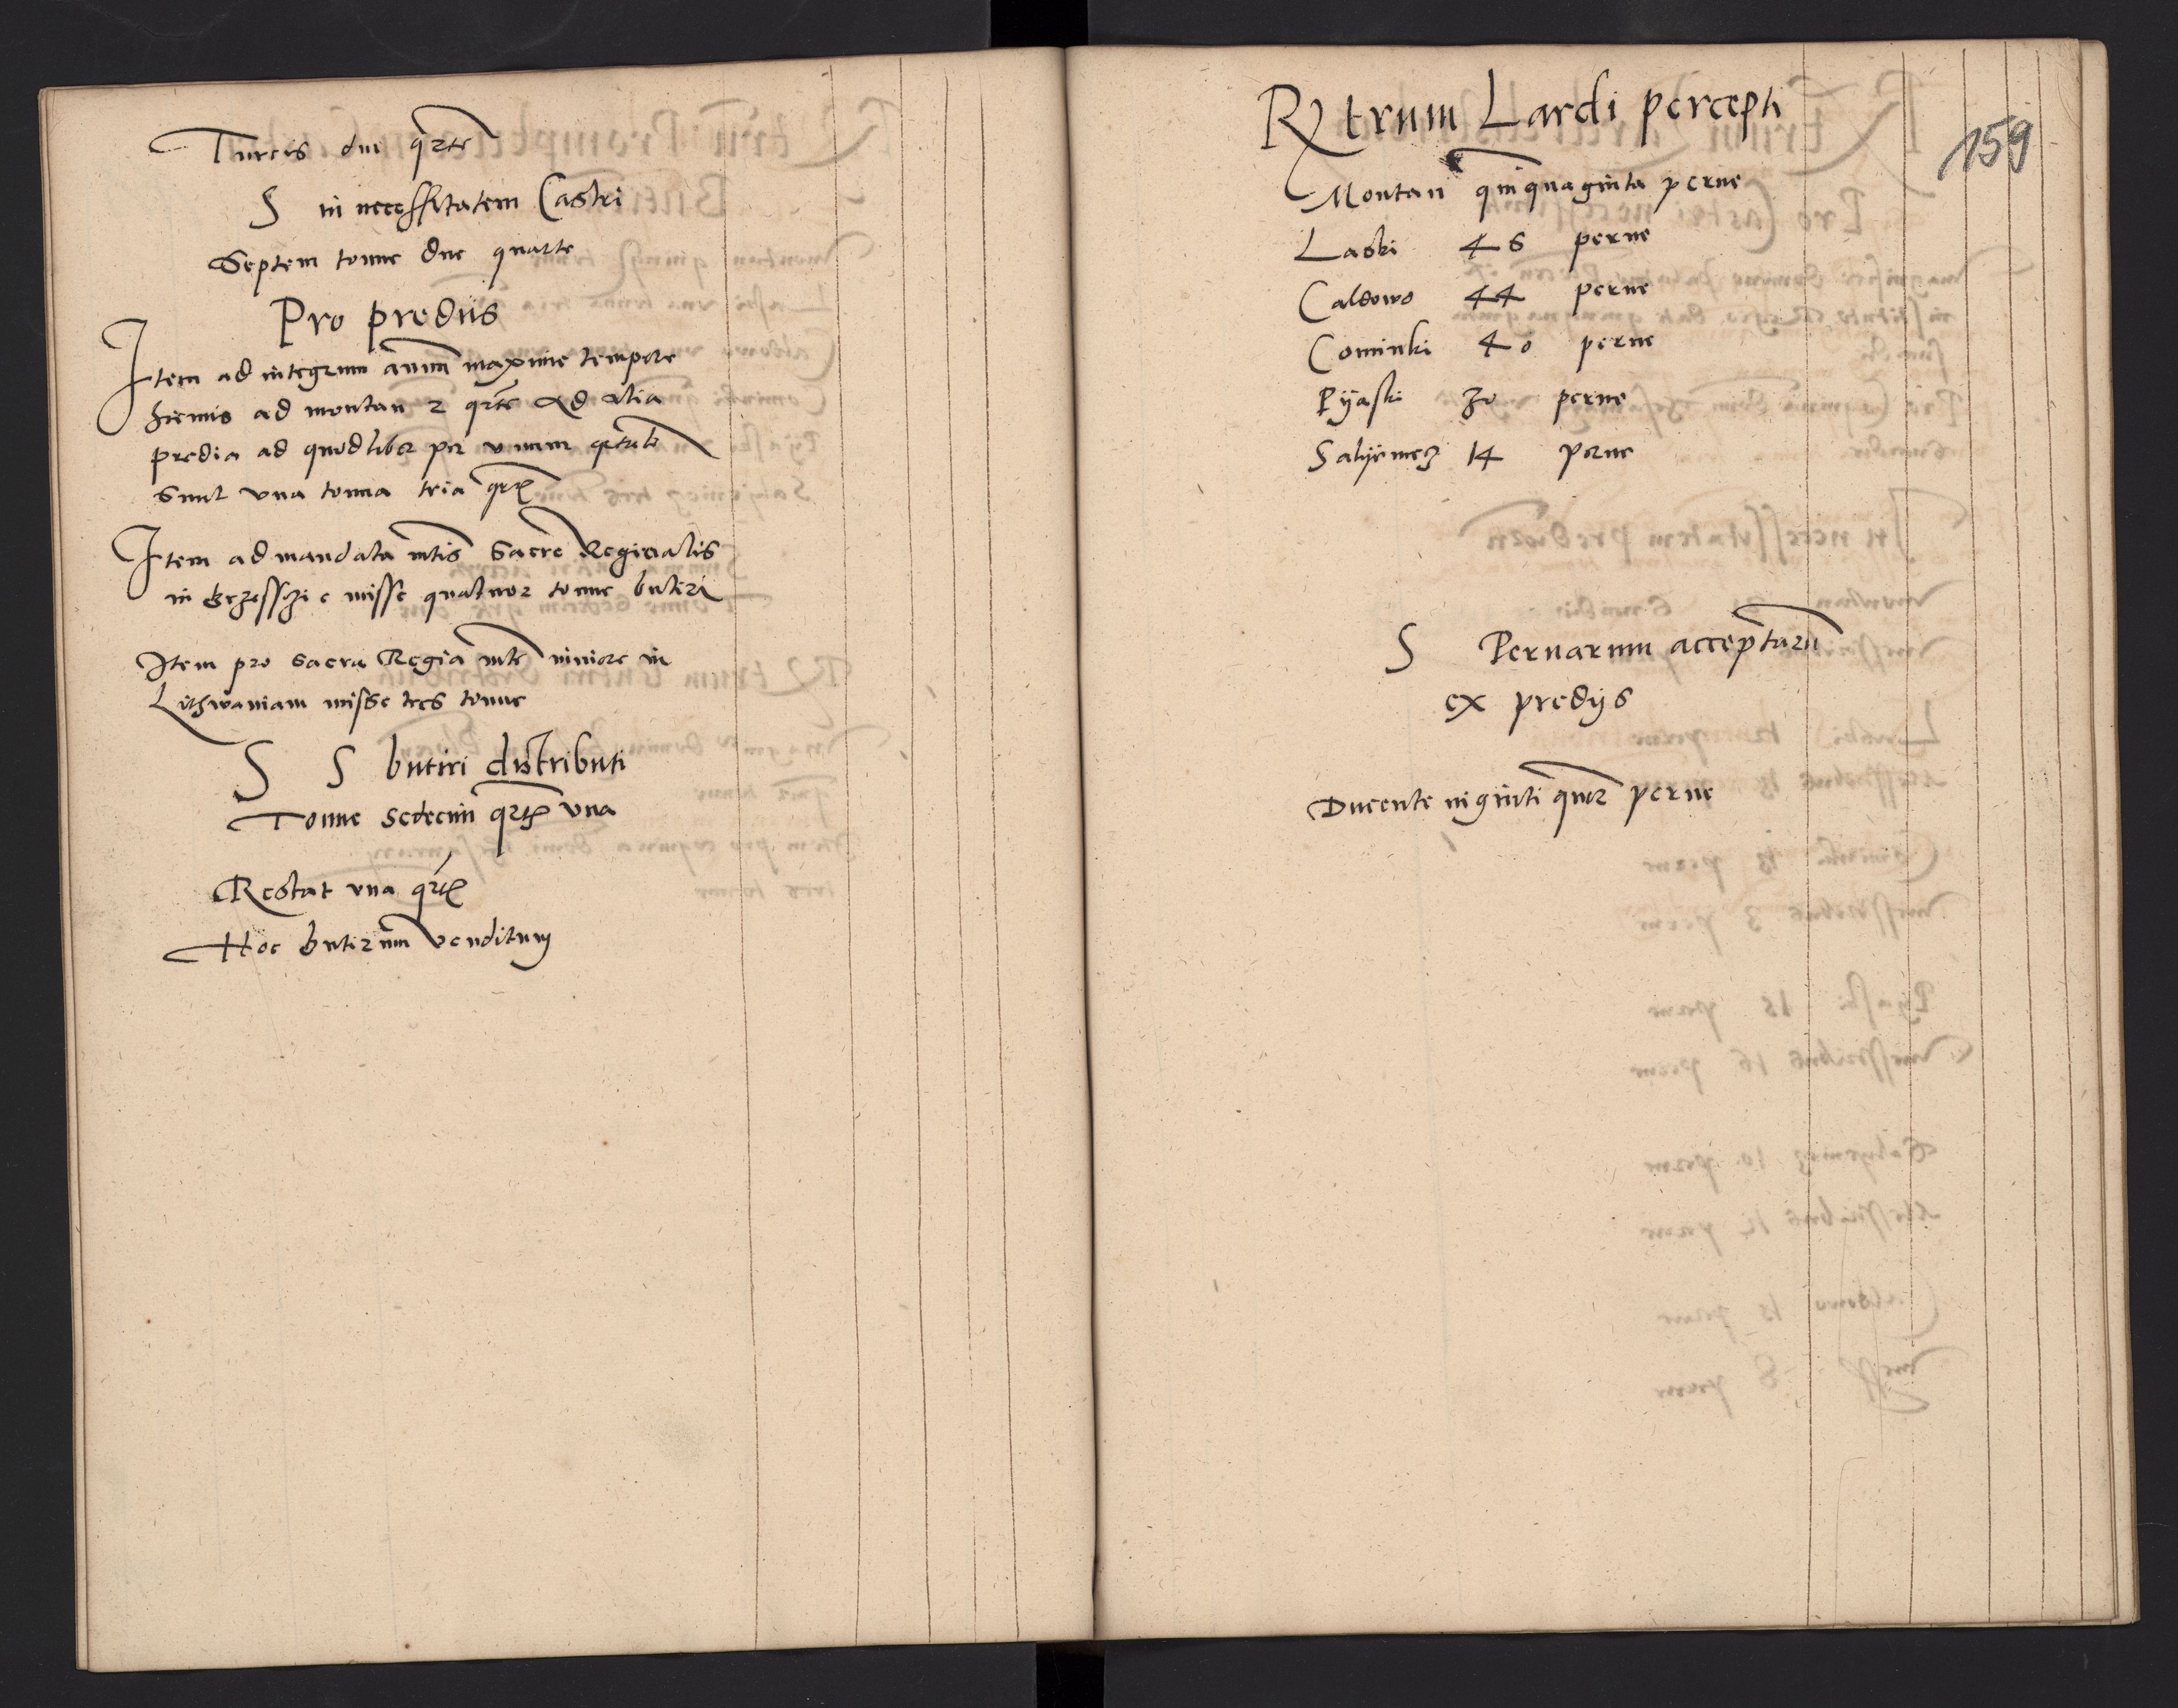 Turcis due qrte
S in necessitatem Castri
Septem tonne due quarte
Pro prediis
Item ad integrum annum maxime tempore
hiemis ad montan 2 qrte Ad alia
predia ad quodlibet per unum
sunt una tonna tria qrt
Item ad mandata mtis Sacre Reginalis
in misse quatuor tonne butiri
Item pro sacra Regia mte in
Lithwaniam misse tres tonne
S S butiri distributi
Tonne sedecim qrt una
Restat una qrt
Hoc butirum venditum
Rtrum Lardi percepti
159
Montan quinquaginta perne
Laski 46 perne
Caldowo 44 perne
Cominki 40 perne
Pyaski 30 perne
Salyemez 14 perne
S Pernarum acceptarum
ex predys
Ducente viginti quor perne